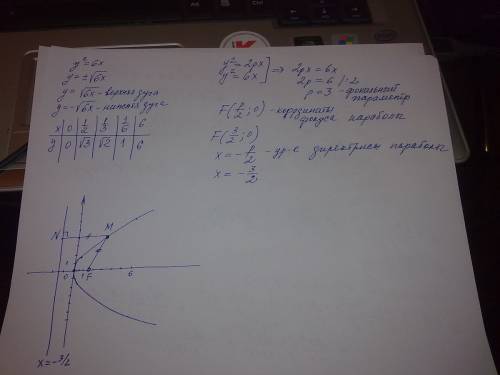 y² = 6x
y = ±√6x
y = √6x - верхняя дуга
y = -√6x - нижняя дуга
x 0 1/2 1/3 1/6 6
y 0 √3 √2 1 6
y² = 2px
y² = 6x ] ⇒ 2px = 6x
2p = 6 |:2
p = 3 - фокальный
параметр
F(p/2; 0) - координаты
фокуса параболы
F(3/2; 0)
x = -p/2 - ур-е директрисы параболы
x = -3/2
N 3 M
1
0 1 F 6
x = -3/2